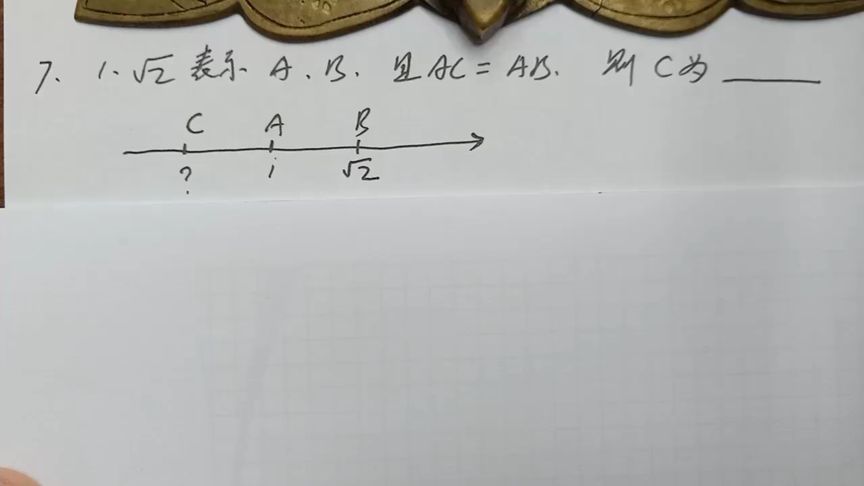 7. 1. √2 表示 A、B. 且 AC = AB. 则 C 为 ______
C A B
? 1 √2